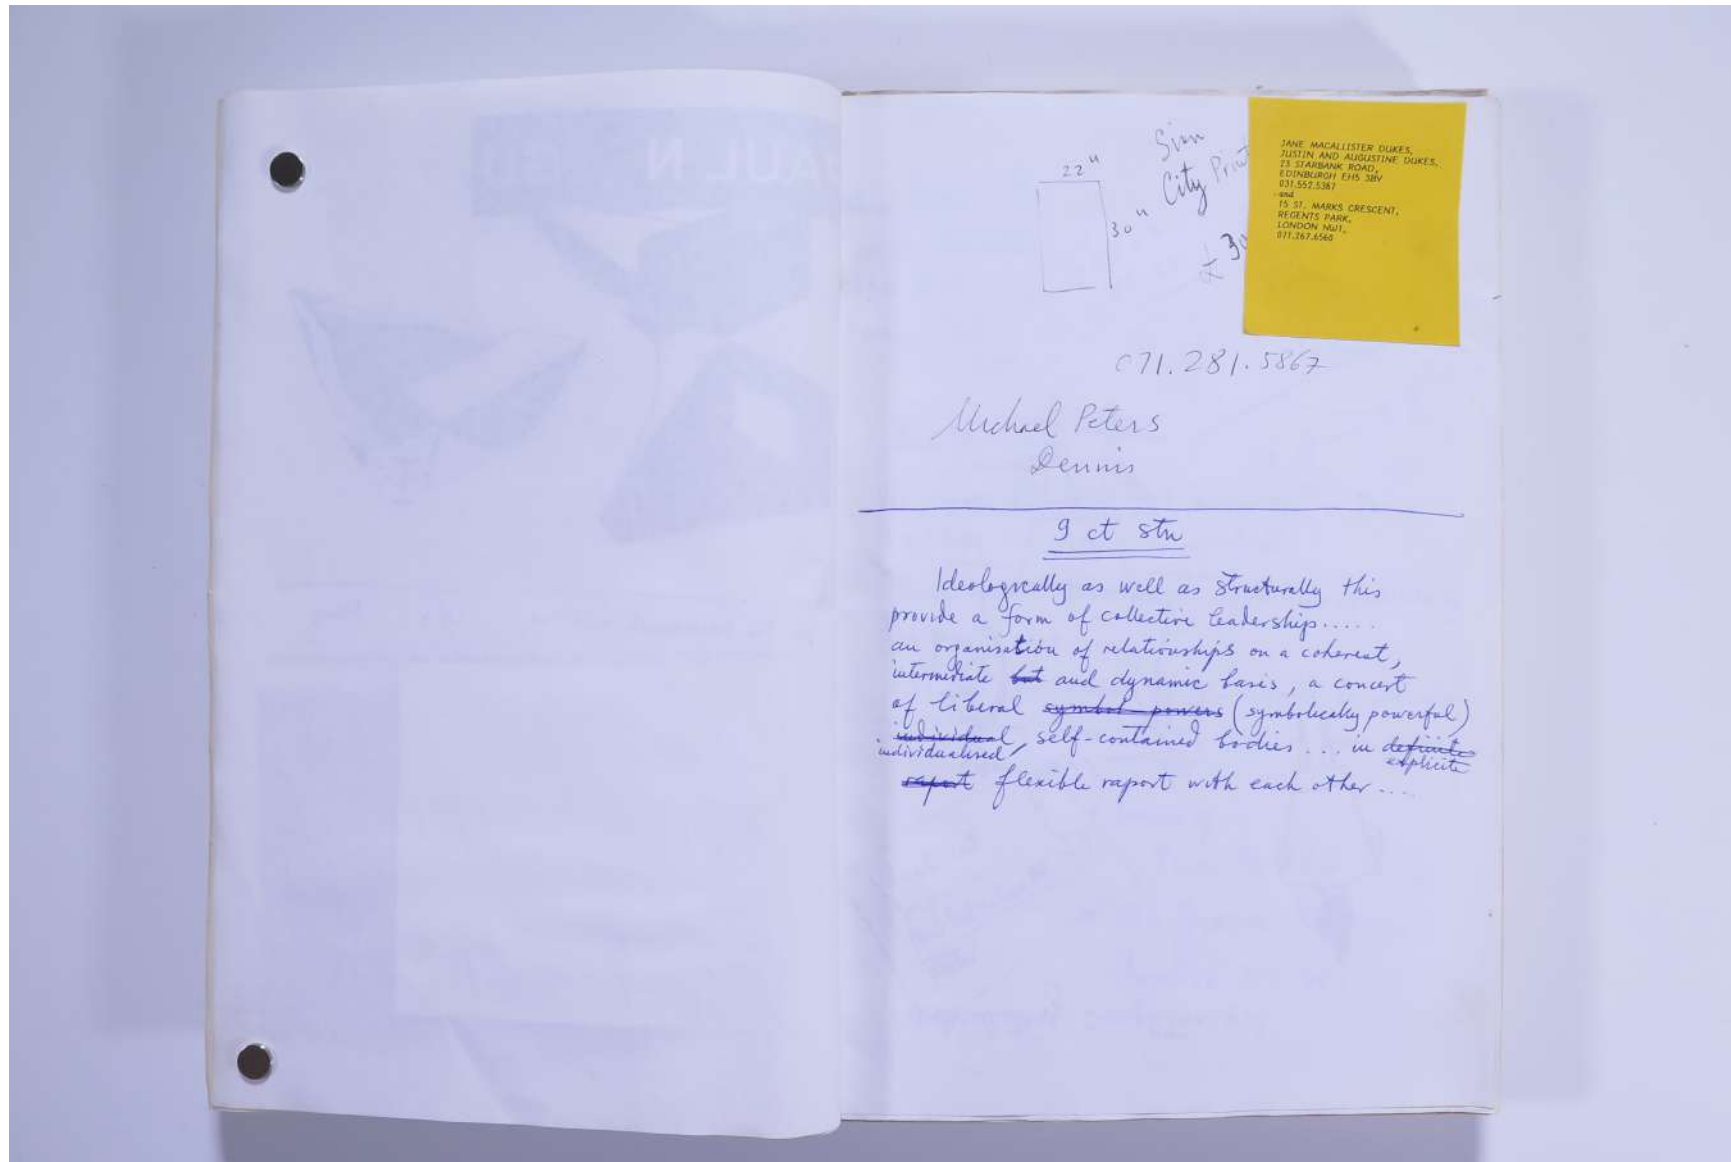 22"
30"
Sim
City Print
£30
JANE MACALLISTER DUKES,
JUSTIN AND AUGUSTINE DUKES,
23 STARBANK ROAD,
EDINBURGH EH5 3BV
031.552.5387
and
15 ST. MARKS CRESCENT,
REGENTS PARK,
LONDON NW1,
071.267.6560
071.281.5867
Michael Peters
Dennis
9 ct stn
Ideologically as well as structurally this
provide a form of collective leaderships.....
an organisation of relationships on a coherent,
intermediate but and dynamic basis, a concert
of liberal symbol powers (symbolically powerful)
individual, self-contained bodies ... in definite
individualised explicite
raport flexible raport with each other.....